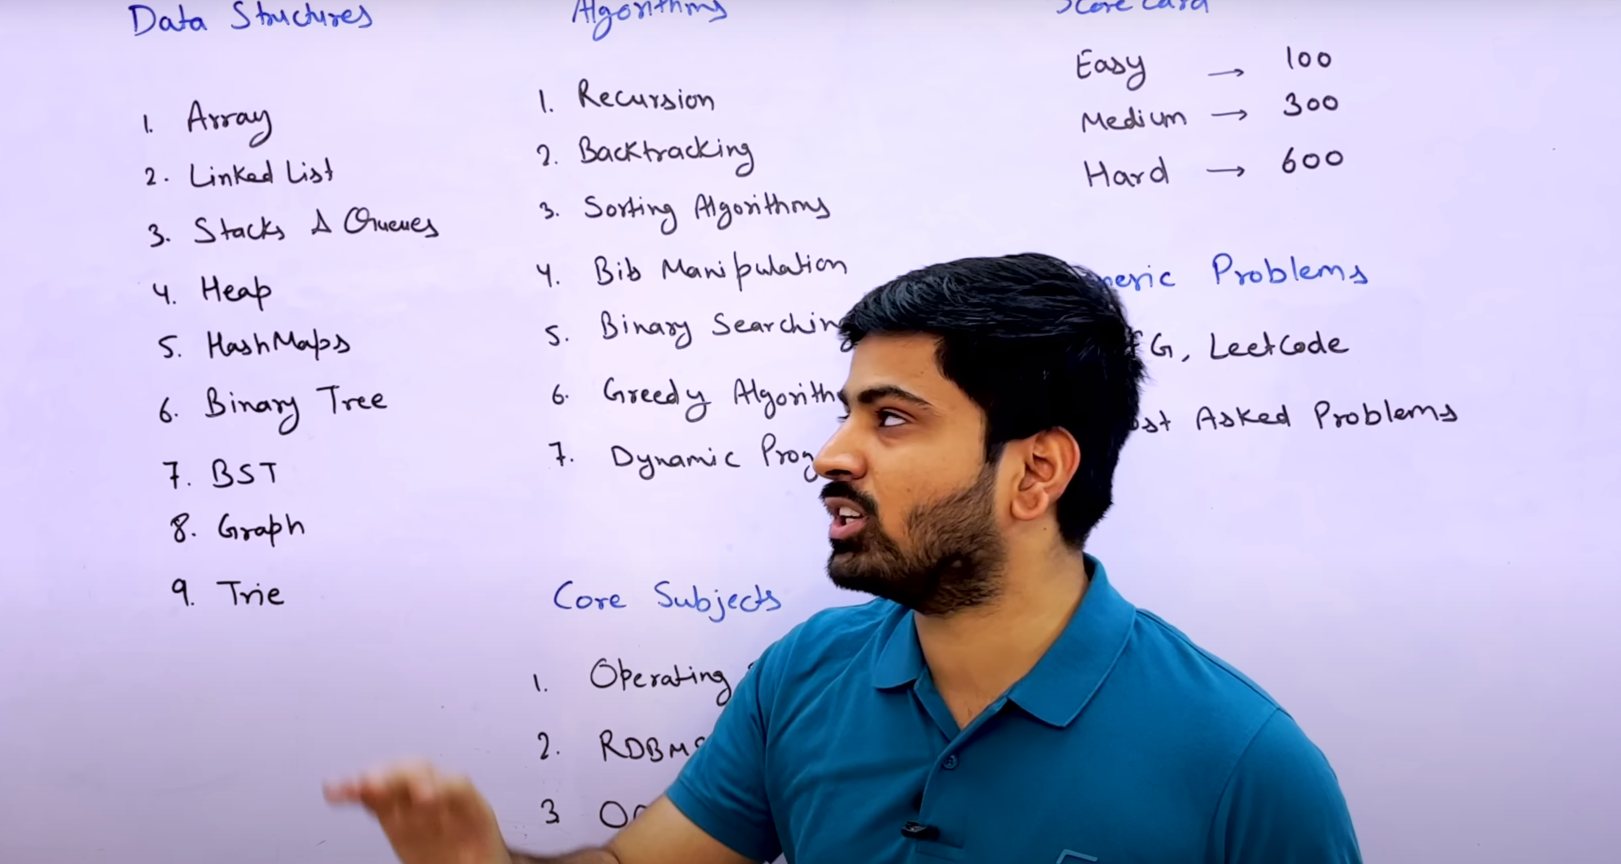 Data Structures
1. Array
2. Linked List
3. Stacks & Queues
4. Heap
5. HashMaps
6. Binary Tree
7. BST
8. Graph
9. Trie
Algorithms
1. Recursion
2. Backtracking
3. Sorting Algorithms
4. Bib Manipulation
5. Binary Searching
6. Greedy Algorith
7. Dynamic Prog
Core Subjects
1. Operating
2. RDBMS
3
Score Card
Easy → 100
Medium → 300
Hard → 600
neric Problems
G, LeetCode
ost Asked Problems